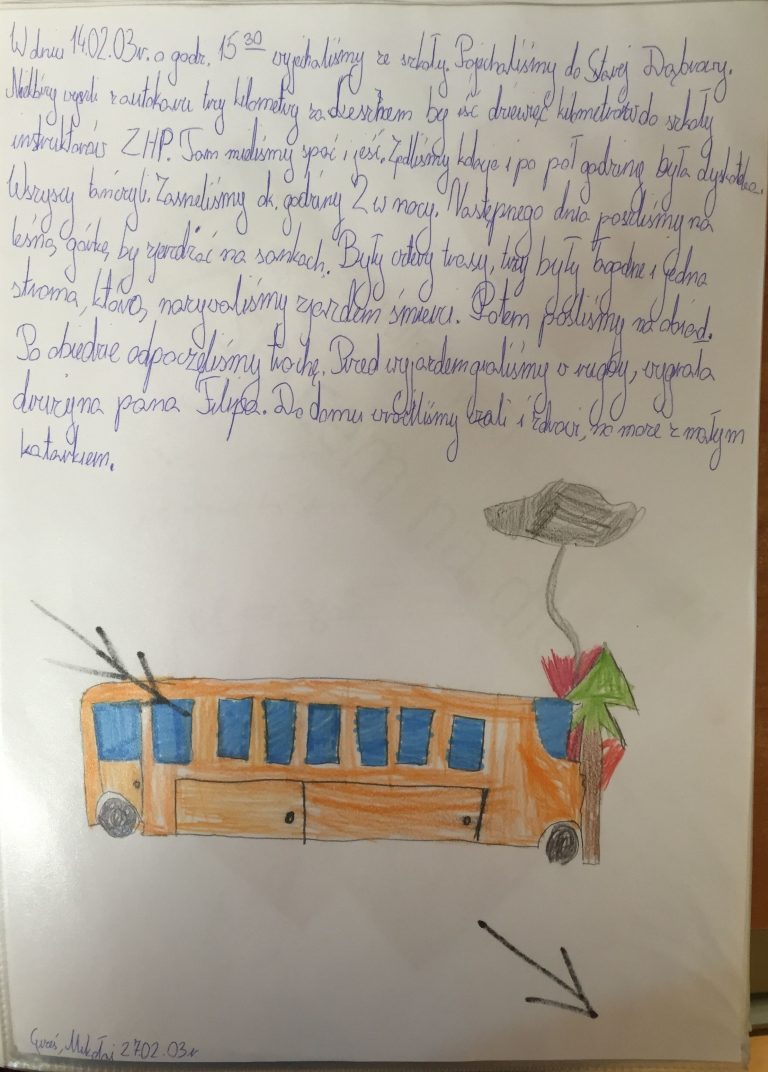 W dniu 14.02.03r. o godz. 15 30 wyjechaliśmy ze szkoły. Pojechaliśmy do Starej Dąbrowy.
wyszli z autokaru trzy kilometry za by iść dziewięć kilometrów do szkoły
instruktorów ZHP. Tam mieliśmy spać i jeść. Zjedliśmy kolacje i po pół godzinie była dyskoteka.
Wszyscy tańczyli. Zasneliśmy ok. godziny 2 w nocy. Następnego dnia poszliśmy na
leśną górkę, by zjerdżać na sankach. Były cztery trasy, trzy były łagodne i jedna
stroma, którą nazywaliśmy zjazdem śmierci. Potem pośliśmy na obiad.
Po obiedzie odpoczęliśmy trochę. Przed wyjazdem graliśmy w rugby, wygrała
drużyna pana Filipa. Do domu wróciliśmy cali i zdrowi, no może z małym
katarkiem.
27.02.03r